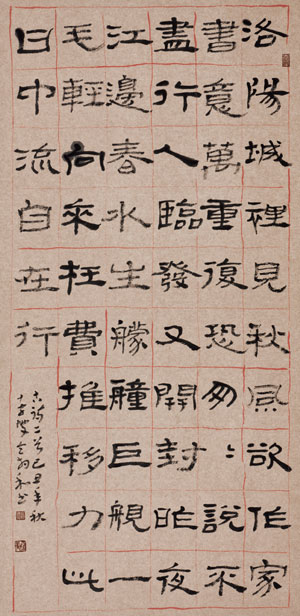 洛陽城裡見秋風欲作家
書意萬重復恐匆〻說不
盡行人臨發又開封昨夜
江邊春水生艨艟巨艦一
毛輕向來枉費推移力此
日中流自在行
古詩二首己丑年秋